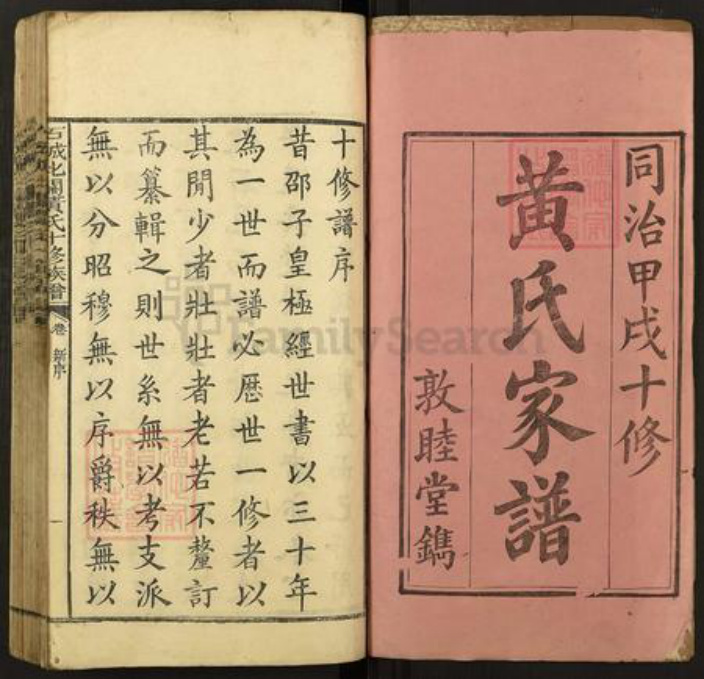 同治甲戌十修
黄氏家譜
敦睦堂鐫
十修譜序
昔邵子皇極經世書以三十年
為一世而譜必歷世一修者以
其閒少者壯壯者老若不釐訂
而纂輯之則世系無以考支派
無以分昭穆無以序爵秩無以
石城北關黃氏十修族譜
卷
新序
一
FamilySearch